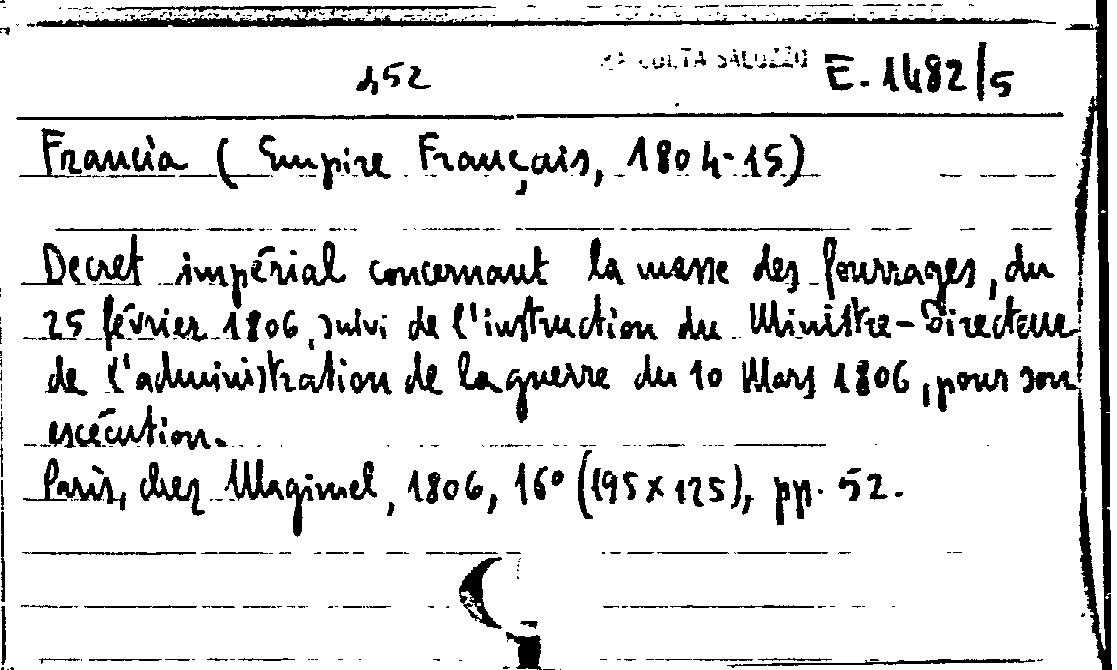 452 RACCOLTA SALUZZO E. 1482/5
Francia ( Empire Français, 1804-15)
Decret impérial concernant la masse des fourrages, du
25 février 1806, suivi de l'instruction du Ministre-Directeur
de l'administration de la guerre du 10 Mars 1806, pour son
escécution.
Paris, chez Magimel, 1806, 16° (195 x 125), pp. 52.